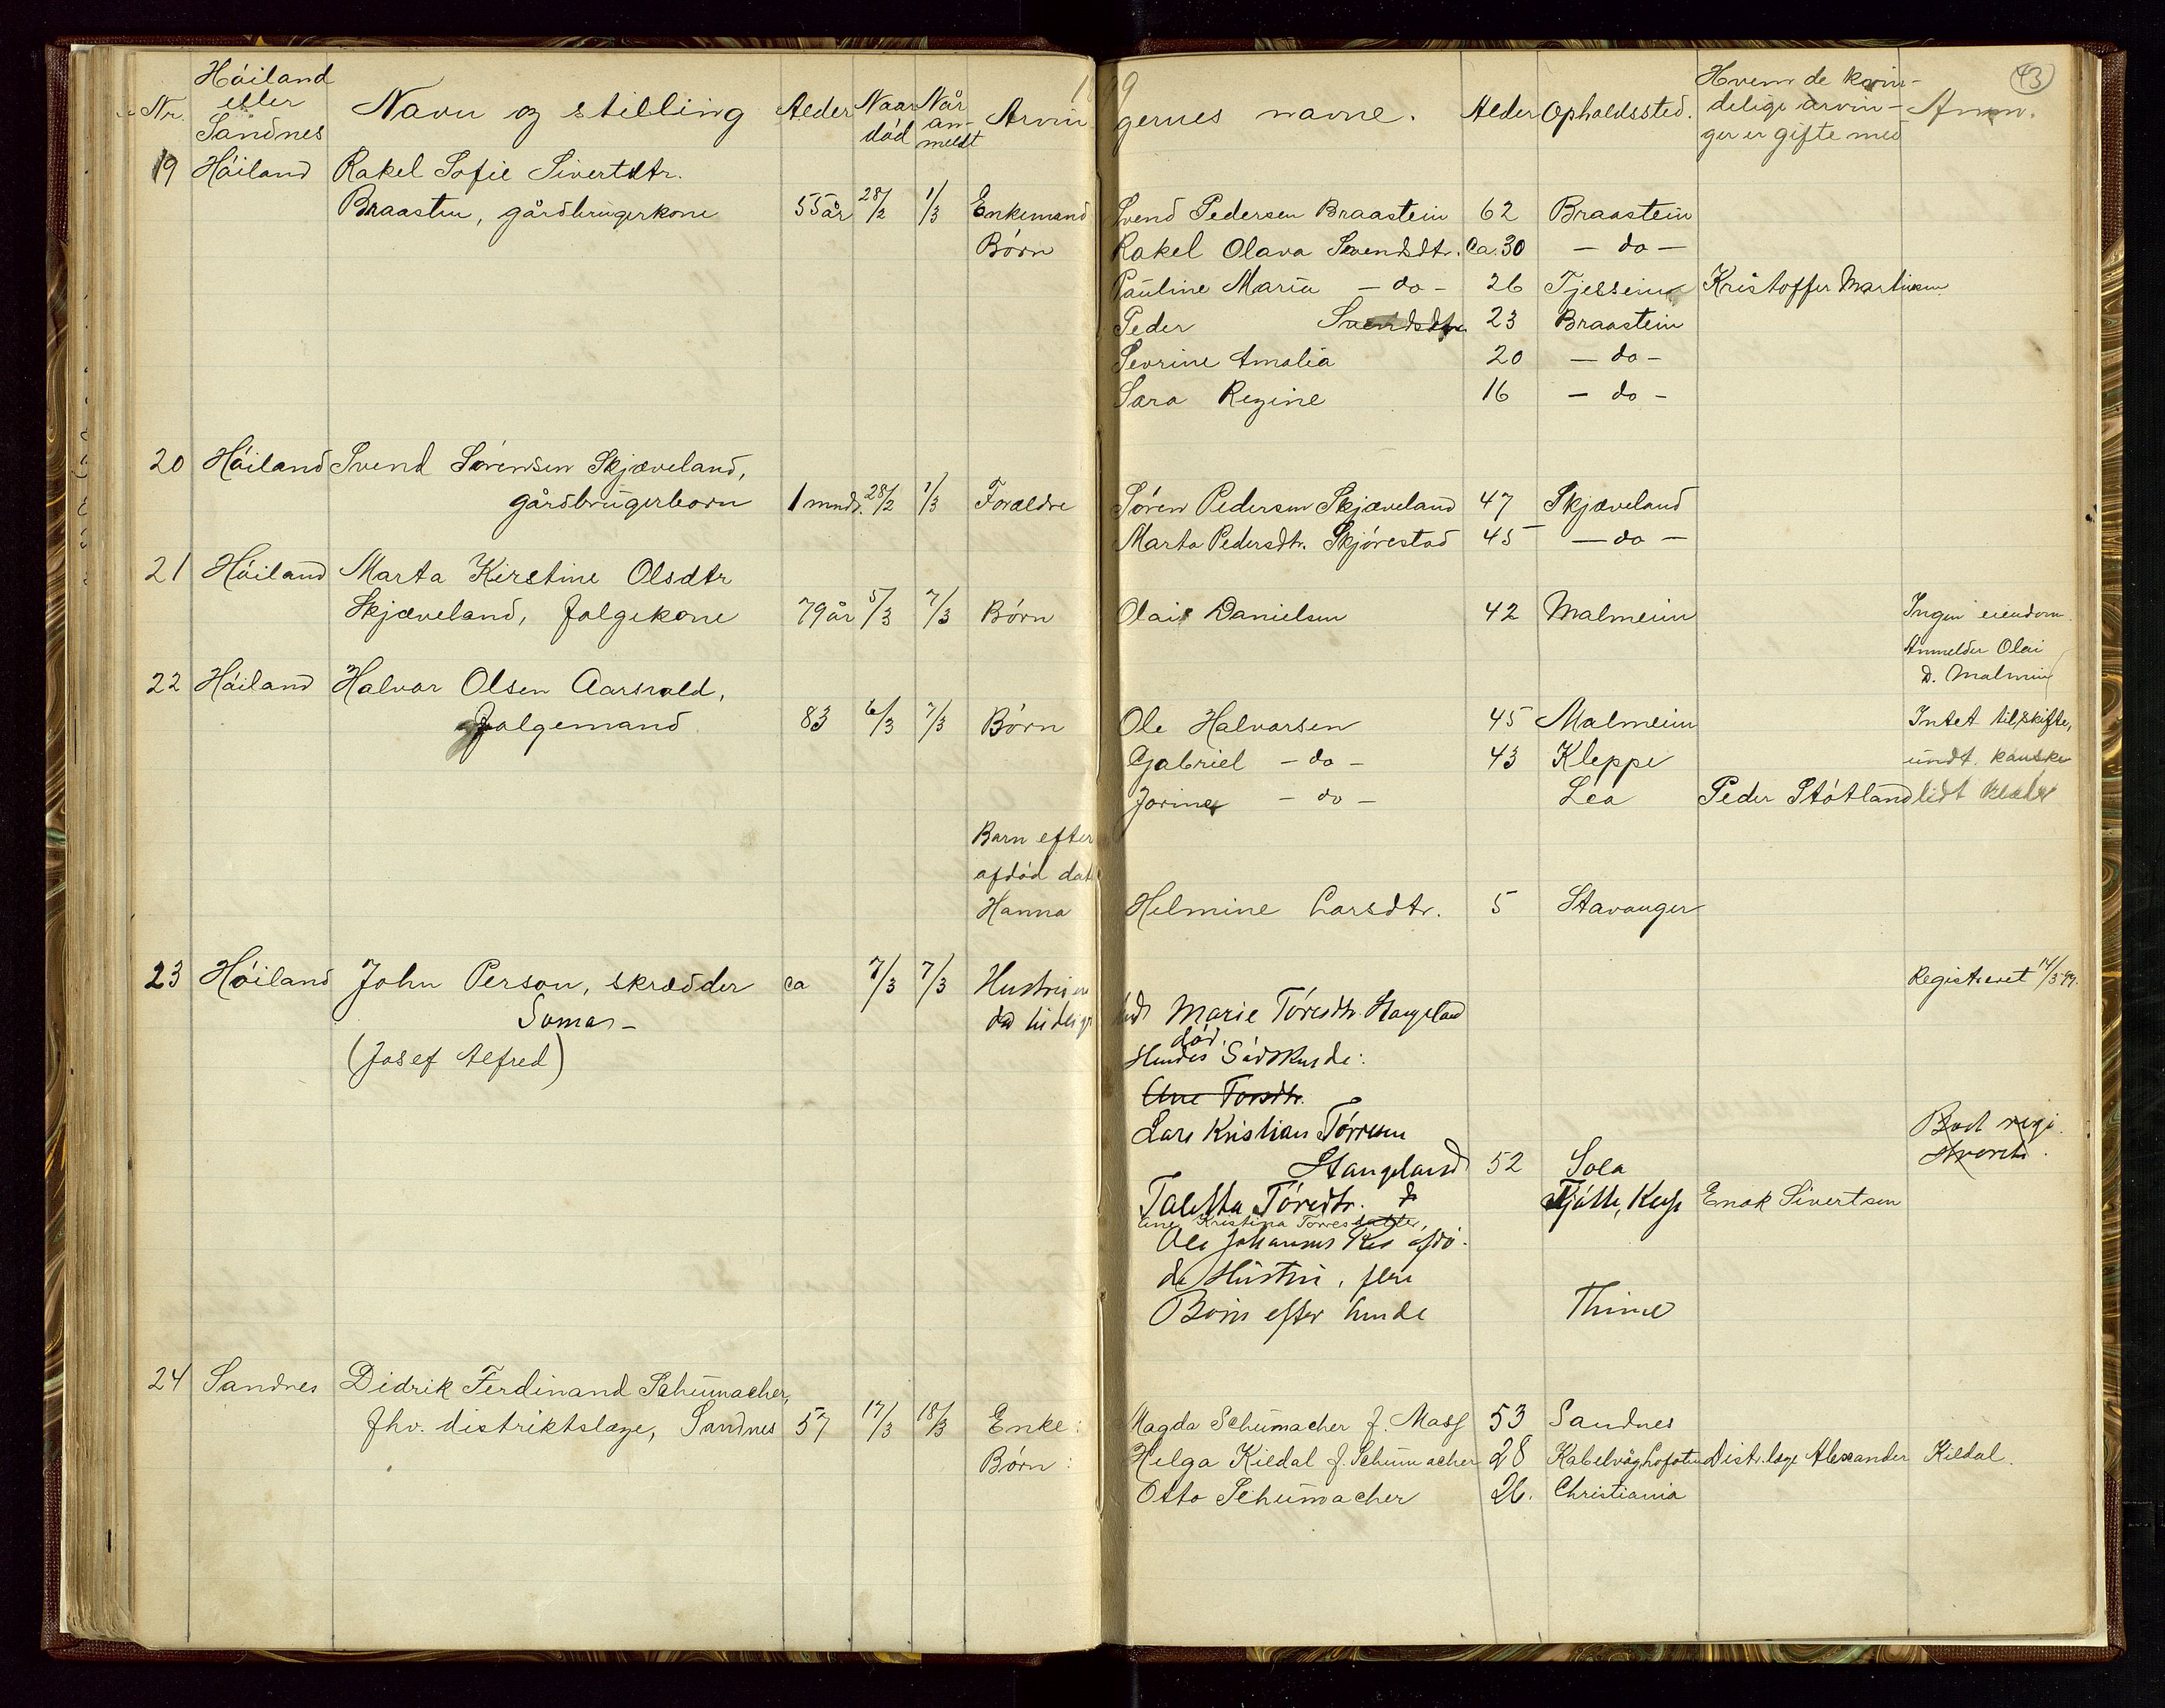 1899
43
Nr. Höiland eller Sandnes Navn og stilling Alder Naar död Når anmeldt Arvingernes navne. Alder Opholdssted. Hvem de kvindelige arvinger er gifte med Anm.
19 Höiland Rakel Sofie Sivertdtr.
Braastein, gårdbrugerkone 55 år 28/2 1/3 Enkemand Svend Pedersen Braastein 62 Braastein
Börn Rakel Olava Svendsdtr. ca. 30 — do —
Pauline Maria — do — 26 Tjessein Kristoffer Martinsen
Peder Svendsdtr. 23 Braastein
Sevrine Amalia 20 — do —
Sara Regine 16 — do —
20 Höiland Svend Sörensen Skjæveland,
gårdbrugerbarn 1 mnd. 28/2 1/3 Forældre Sören Pedersen Skjæveland 47 Skjæveland
Marta Pedersdtr. Skjörestad 45 — do —
21 Höiland Marta Kirstine Olsdtr
Skjæveland, folgekone 79 år 5/3 7/3 Börn Olai Danielsen 42 Malmeim Ingen eiendom.
Anmelder Olai
D. Malmeim
22 Höiland Halvor Olsen Aarsvold,
Folgemand 83 6/3 7/3 Börn Ole Halvorsen 45 Malmeim Intet til skifte,
Gabriel — do — 43 Kleppe undt. kanske
Jorine — do — Lea Peder Stötland lidt klæder
Barn efter
afdöd dat
Hanna Helmine Larsdtr. 5 Stavanger
23 Höiland John Person, skrædder ca 7/3 7/3 Hustru Registreret 14/3 99.
Somas — Marie Töresdtr. Stangeland
(Josef Alfred) död.
Hendes Södskende:
Ane Torsdtr.
Lars Kristian Törresen
Stangeland 52 Sola
Taletta Töresdtr. Enok Sivertsen
Ane Kristina Törresdatter,
Ole Johannes afdö-
de Hustru, flere
Börn efter hende Thime
24 Sandnes Didrik Ferdinand Schumacher,
fhv. distriktslæge, Sandnes 57 17/3 18/3 Enke: Magda Schumacher f. Mass 53 Sandnes
Börn: Helga Kildal f. Schumacher 28 Kabelvåg Lofoten Distr.læge Alexander Kildal.
Otto Schumacher 26. Christiania